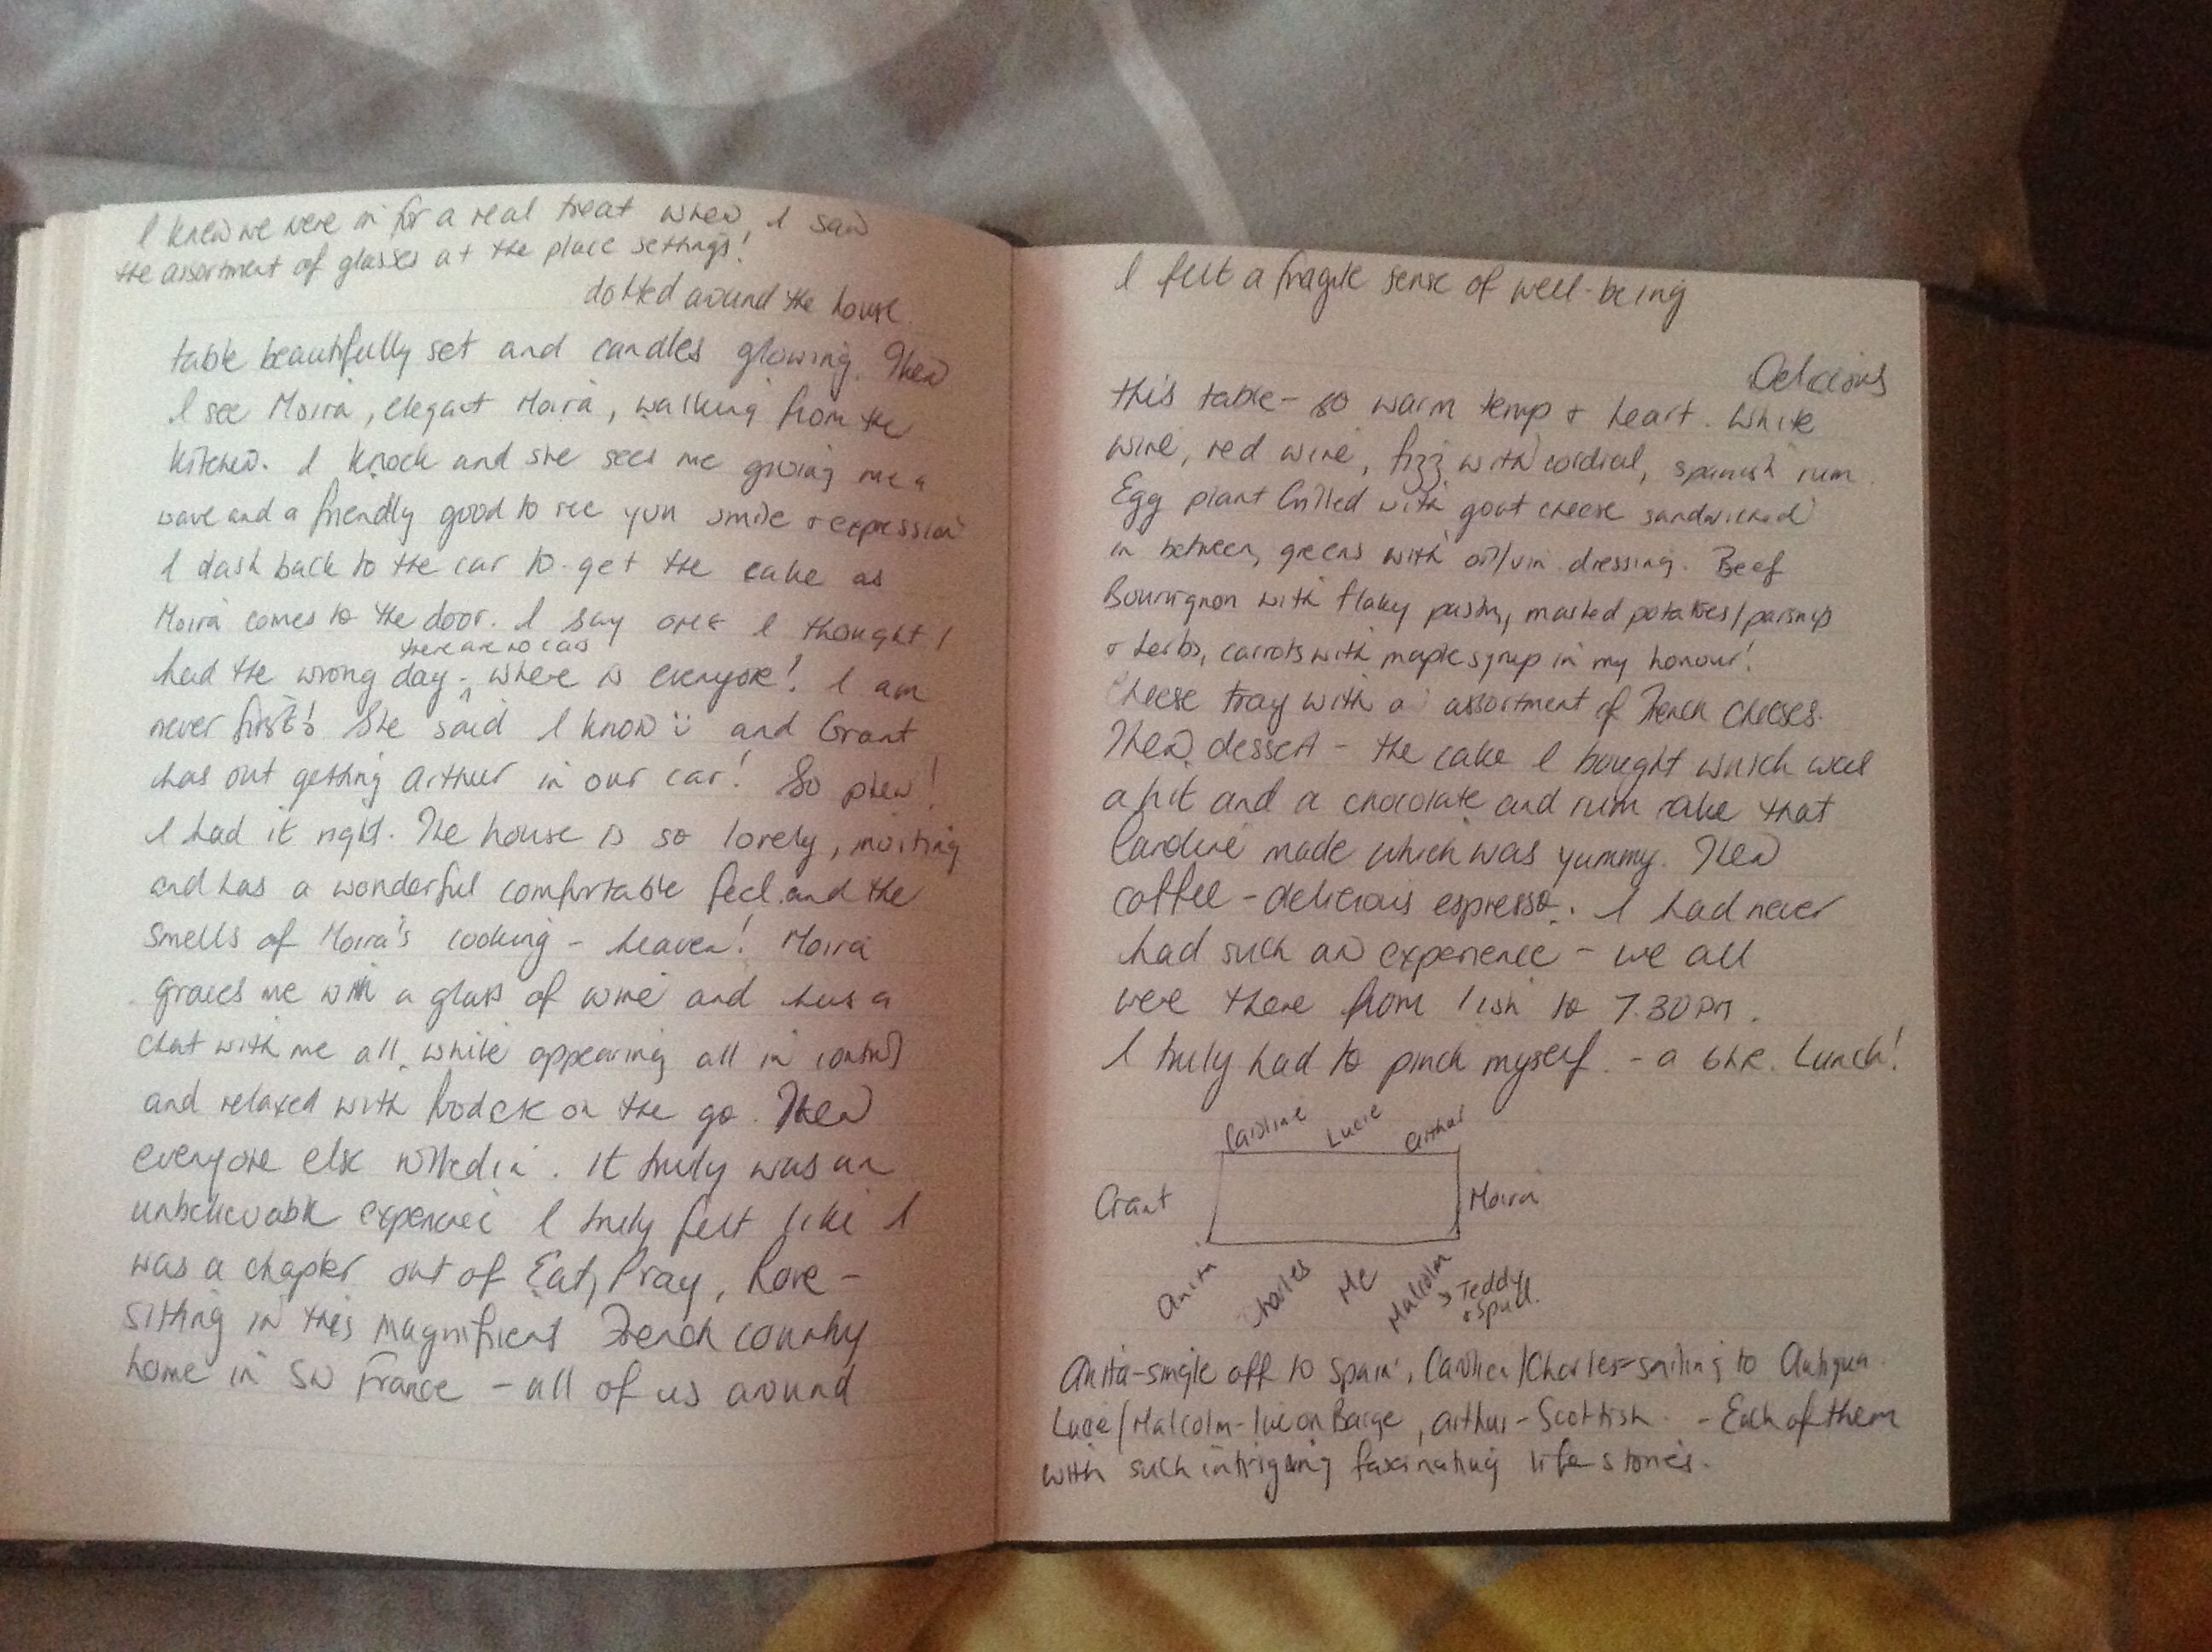 I knew we were in for a real treat when I saw
the assortment of glasses at the place settings!
dotted around the house.
table beautifully set and candles glowing. Then
I see Moira, elegant Moira, walking from the
kitchen. I knock and she sees me giving me a
wave and a friendly good to see you smile + expression
I dash back to the car to get the cake as
Moira comes to the door. I say I thought I
there are no cars
had the wrong day - where is everyone! I am
never first! She said I know :) and Grant
was out getting Arthur in our car! So phew!
I had it right. The house is so lovely, inviting
and has a wonderful comfortable feel and the
smells of Moira's cooking - heaven! Moira
graces me with a glass of wine and has a
chat with me all while appearing all in control
and relaxed with on the go. Then
everyone else rolled in. It truly was an
unbelievable experience I truly felt like I
was a chapter out of Eat, Pray, Love -
sitting in this magnificent French country
home in SW France - all of us around
I felt a fragile sense of well-being
Delicious
this table - so warm temp + heart. White
wine, red wine, fizz with cordial, spanish rum.
Egg plant Grilled with goat cheese sandwiched
in between, greens with oil/vin dressing. Beef
Bourignon with flaky pastry, mashed potatoes/parsnip
+ herbs, carrots with maple syrup in my honour!
Cheese tray with a assortment of French cheeses.
Then dessert - the cake I bought which was
a hit and a chocolate and rum cake that
Caroline made which was yummy. Then
coffee - delicious espresso. I had never
had such an experience - we all
were there from 1ish to 7.30pm.
I truly had to pinch myself. - a 6hr. Lunch!
Caroline Lucie Arthur
Grant Moira
Anita Charles Me Malcolm
→ Teddy
+ Spud.
Anita-single off to Spain, Caroline/Charles=sailing to Antigua.
Lucie/Malcolm-live on Barge, Arthur-Scottish. - Each of them
with such intriguing fascinating life stories.